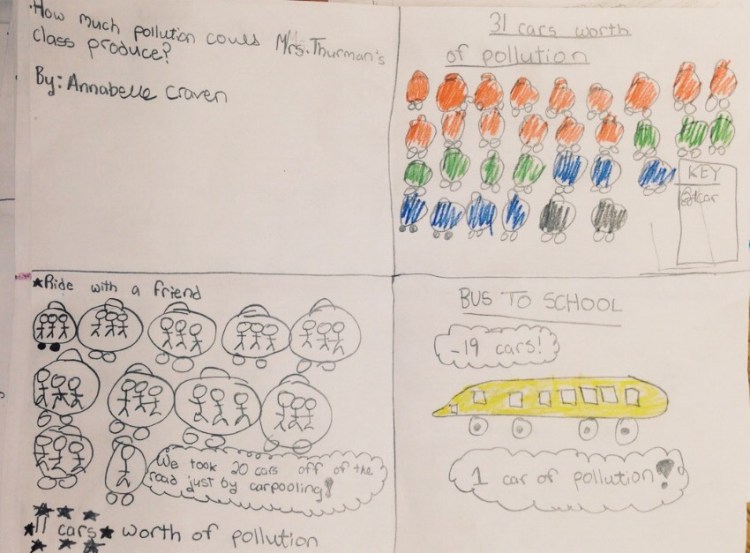 How much pollution could Mrs. Thurman's
class produce?
By: Annabelle Craven
31 cars worth
of pollution
KEY
=1 car
★Ride with a friend
We took 20 cars off of the
road just by carpooling!
★11 cars★ worth of pollution
BUS TO SCHOOL
-19 cars!
1 car of pollution!